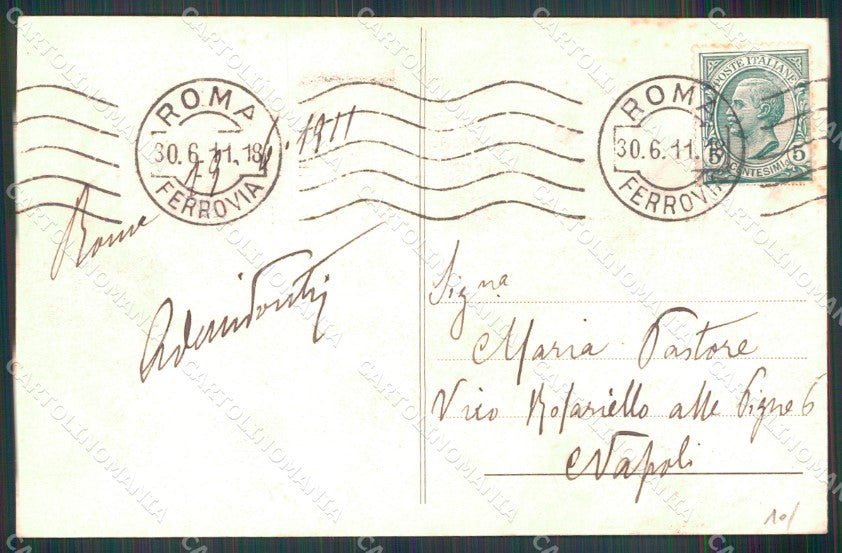 ROMA
30.6.11.18
FERROVIA
ROMA
30.6.11.18
FERROVIA
POSTE ITALIANE
5 CENTESIMI 5
Roma
1911
Sig.na
Maria Pastore
Vico Rosariello alle Pigne 6
Napoli
10/
CARTOLINOMANIA